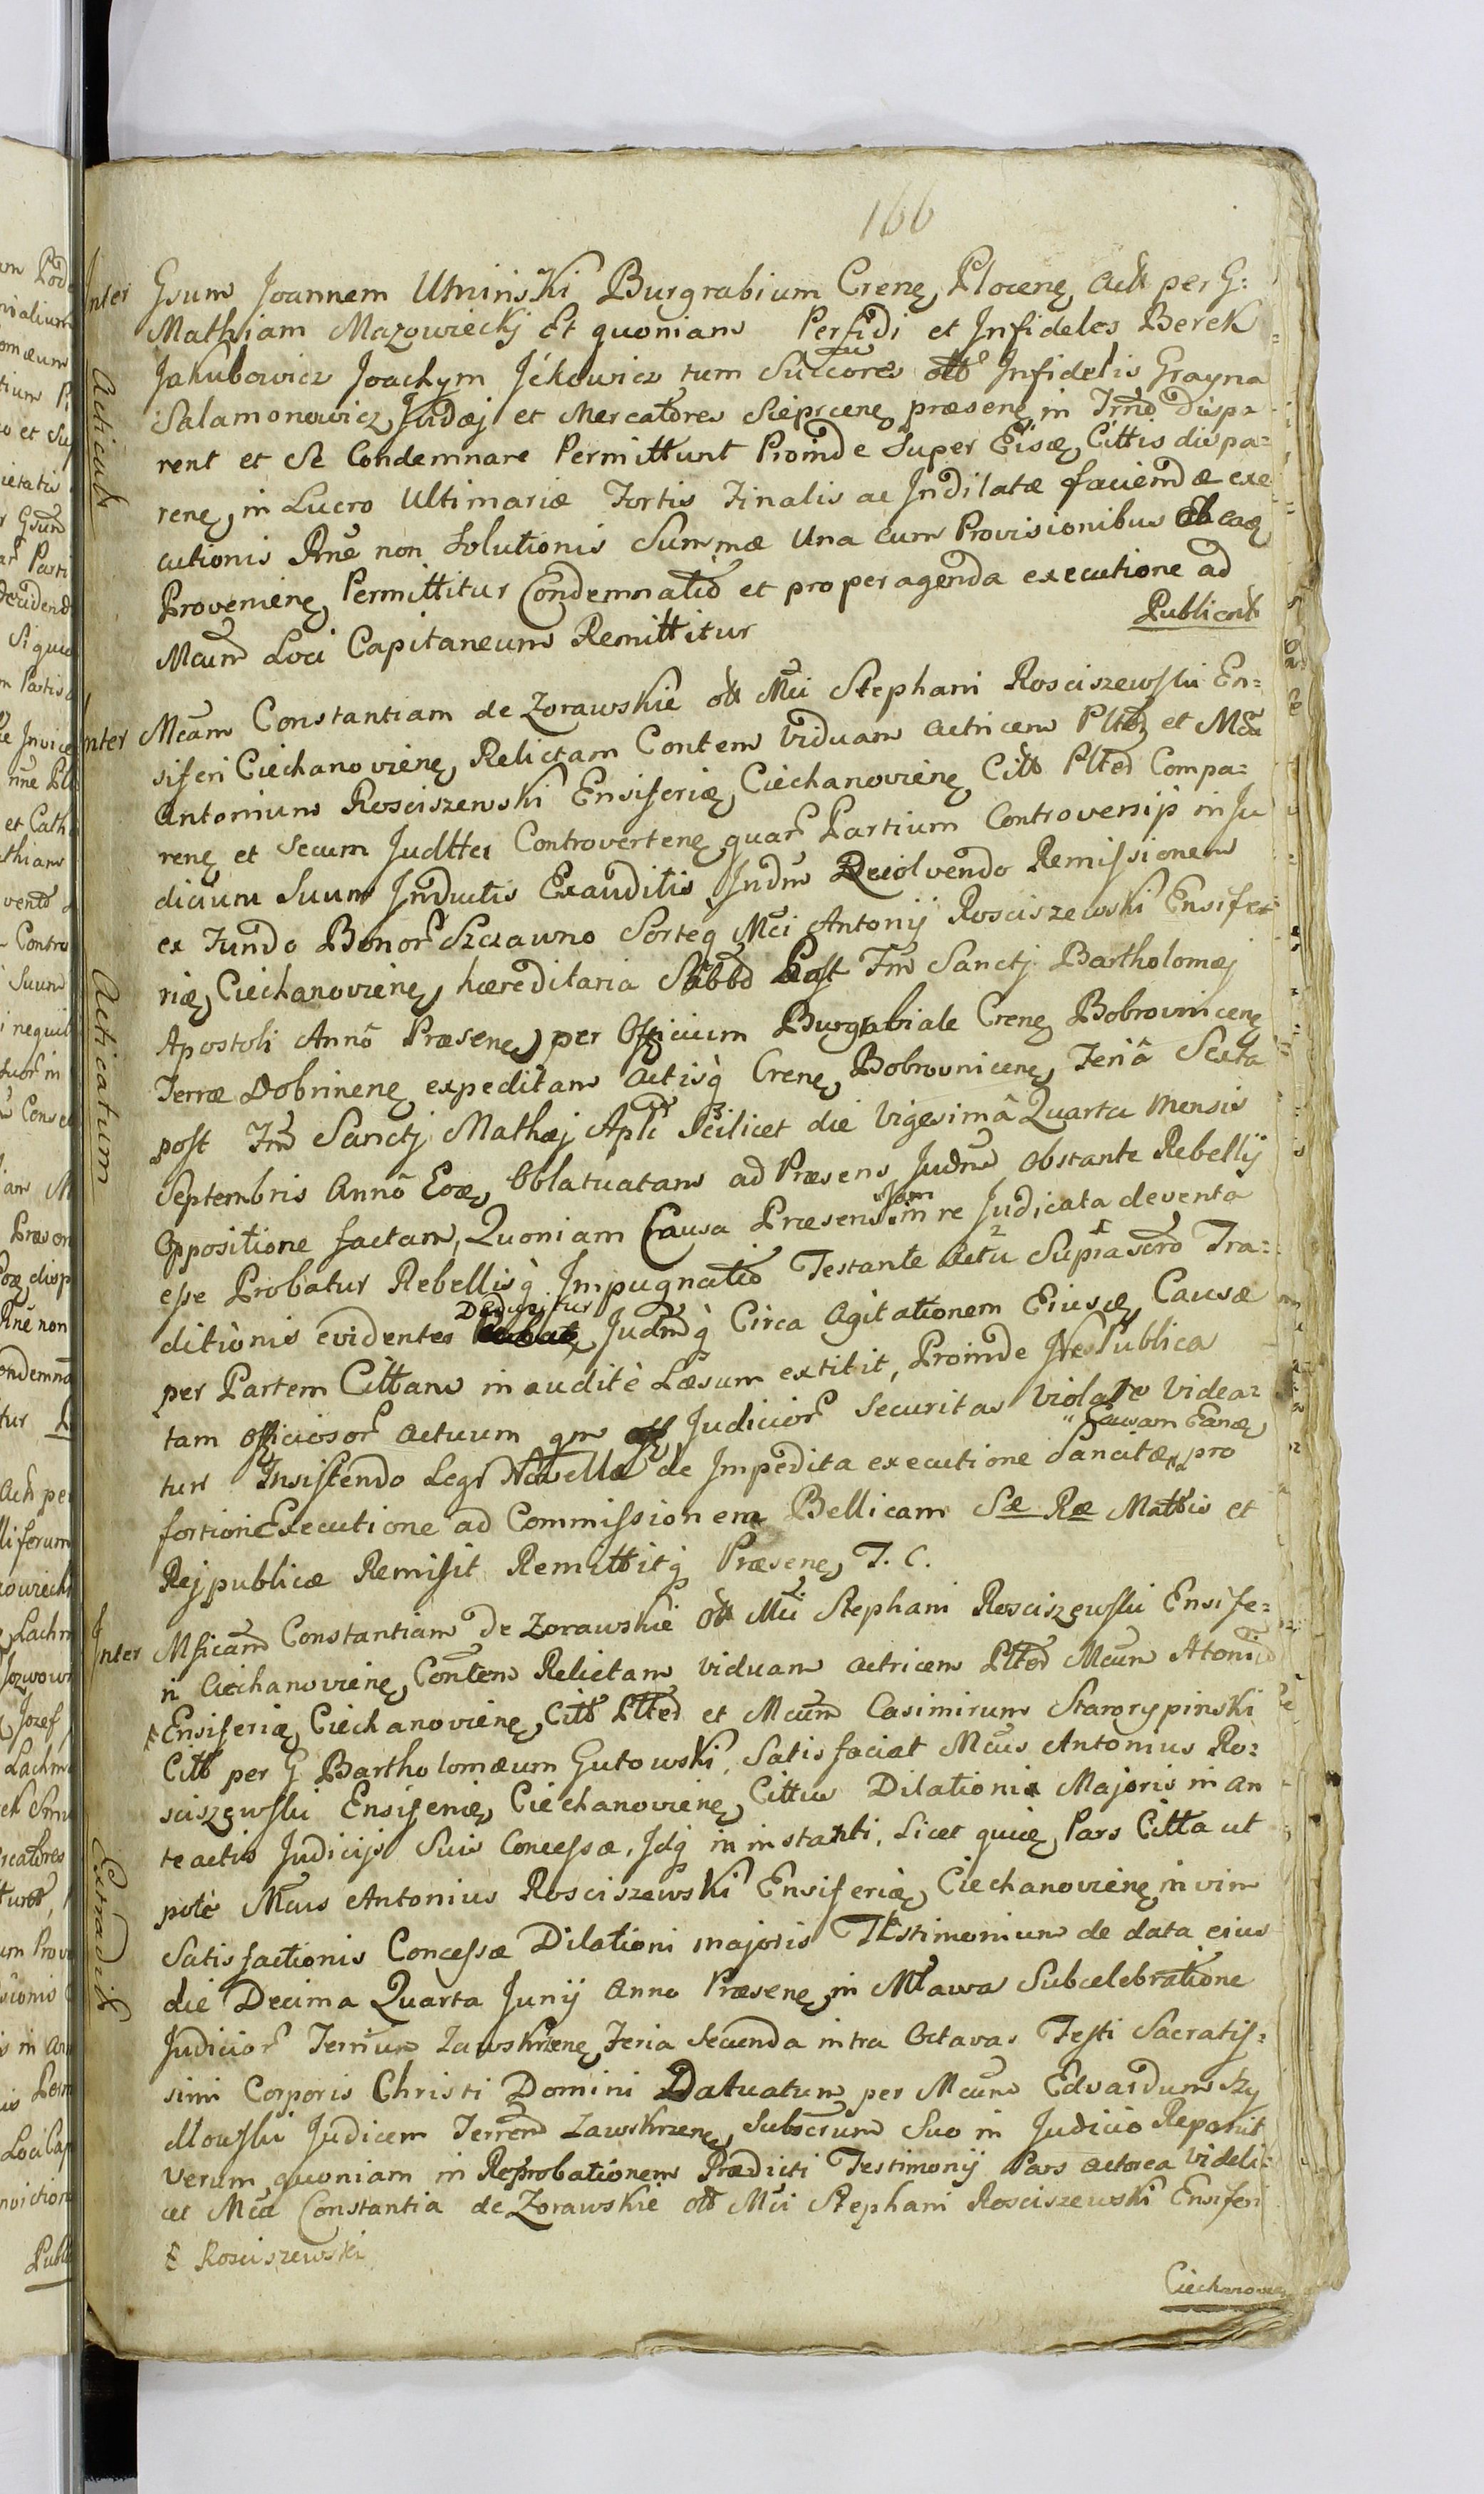 166
Inter Gsum Joannem Utninski Burgrabium Crenę Plocenę Act per G:
Mathiam Mazowiecki Et quoniam Perfidi et Infideles Berek
Jakubowicz Joachym Ickowicz tum Succores olt Infidelis Grayna
Salamonowicz Judæj et Mercatores Sieprcenę præsenę in Trnd dispa-
rent et Se Condemnare Permittunt Proinde Super Eisæ Cittis dispa=
renę, in Lucro Ultimariæ Fortis Finalis ac Indilatæ faciendæ exe
cutionis Rne non Solutionis Summæ Una cum Provisionibus ab eaę
Provenienę Permittitur Condemnatio et pro peragenda executione ad
Mcum Loci Capitaneum Remittitur Publicat
Acticatt
Inter Mcam Constantiam de Zorawskie olt Mci Stephani Rosciszewski En=
siferi Ciechanovienę Relictam Contem Viduam actricem Plteg et Mcu
Antonium Rosciszewski Ensiferię Ciechanovienę Citt Plted Compa=
renę et Secum Judtter Controvertenę quar Partium Controversijs in Ju
dicium Suum Inductis Exauditis Judm Resolvendo Remissionem
ex Fundo Bonor Szczawno Sorteq Mci Antonij Rosciszewski Ensife
rię Ciechanovienę hæreditaria Sabbd Post Fm Sanctj Bartholomæj
Apostoli Anno Præsenę per Officium Burgrabiale Crenę Bobrovnicenę
Terræ Dobrinenę expeditam Actisq Crenę Bobrovnicenę Feriâ Sexta
post Fm Sanctj Mathæj Apli Scilicet die Vigesimâ Quarta Mensis
Septembris Anno Eoæ Oblatuatam ad Præsens Judm Obstante Rebellij
Oppositione factam, Quoniam Causa Præsens Jam in re Judicata deventa
esse Probatur Rebellisq Impugnatio Testante Actu 2 Suprascro 1 Tra=
ditionis evidentes Deducitur Judmq Circa Agitationem Eiusæ Causæ
per Partem Cittam inaudite Læsum extitit, Proinde Ne Publica
tam officiosor Actuum qm Judicior Securitas Violare Videa=
tur Insistendo Legi Novellæ de Impedita executione Sancitæ Causam Eanæ pro
fortiori Executione ad Commissionem Bellicam Sæ Ræ Mattis et
Rejpublicæ Remisit Remittitq Præsenę T. C.
Acticatum
Inter Mficam Constantiam de Zorawskie olt Mci Stephani Rosciszewski Ensife=
ri Ciechanovienę Contem Relictam Viduam actricem Plted Mcum Atoniu
Ensiferię Ciechanovienę Citt Plted et Mcum Casimirum Starorypinski
Citt per G Bartholomæum Gutowski, Satisfaciat Mcus Antonius Ro=
sciszewski Ensiferię Ciechanovienę Cittus Dilationi Majoris in an
teactis Judicijs Suis Concessæ, Jdq in instanti, Licet quię Pars Citta ut
pote Mcus Antonius Rosciszewski Ensiferię Ciechanovienę in vim
Satisfactionis Concessæ Dilationi majoris Testimonium de data eius
die Decima Quarta Junij Anno Præsenę in Mlawa Subcelebratione
Judicior Terrium Zawskrzenę Feria Secunda intra Octavas Festi Sacratis=
simi Corporis Christi Domini Datuatum per Mcum Edvardum Szy
dlowski Judicem Terrem Zawskrzenę Subscrum Suo in Judicio Reponit
Verum quoniam in Reprobationem Prædicti Testimonij Pars actorea Videli=
cet Mca Constantia de Zorawskie olt Mci Stephani Rosciszewski Ensiferi
Extradit
Rosciszewski
Ciechanovien